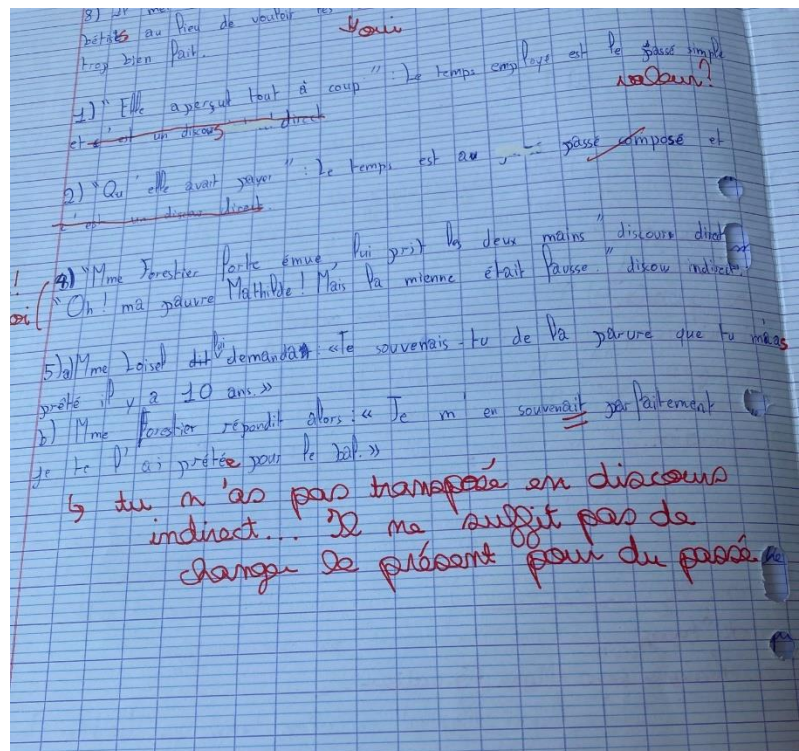 8) 
bêtises au lieu de vouloir
trop bien fait.
oui
1) "Elle aperçut tout à coup" : Le temps employé est le passé simple
valeur?
et c'est un discours direct
2) "Qu'elle avait payer" : Le temps est au passé composé et
c'est un discour direct.
4) "Mme Forestier forte émue, lui prit les deux mains" discours direct
"Oh! ma pauvre Mathilde! Mais la mienne était fausse." discou indirect.
!
5) a) Mme Loisel lui demanda : «Te souvenais-tu de la parure que tu m'as
prêté il y a 10 ans.»
b) Mme Forestier répondit alors : « Je m'en souvenait parfaitement
je te l'ai prêtée pour le bal.»
↳ tu n'as pas transposé en discours
indirect... Il ne suffit pas de
changer le présent pour du passé